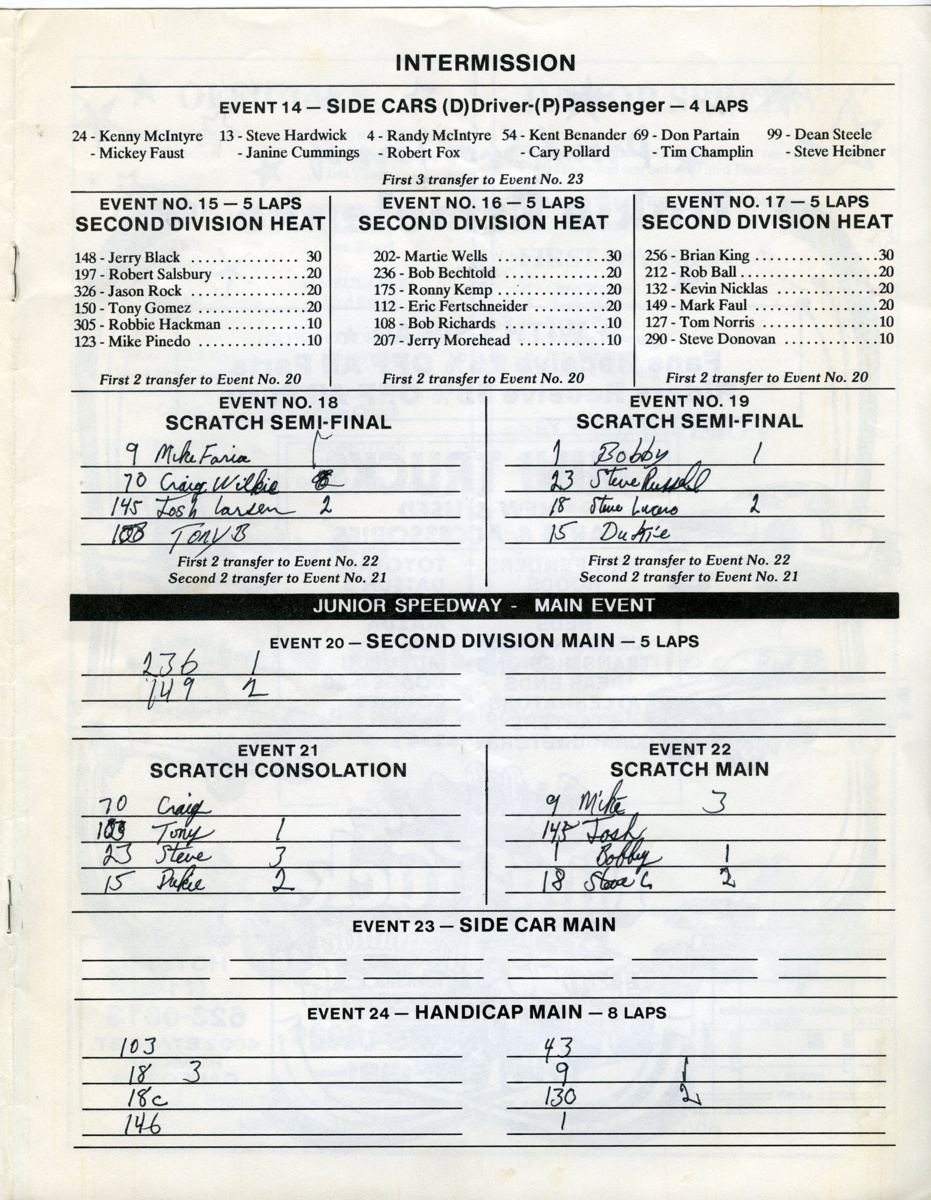 INTERMISSION
EVENT 14 — SIDE CARS (D)Driver-(P)Passenger — 4 LAPS
24 - Kenny McIntyre 13 - Steve Hardwick 4 - Randy McIntyre 54 - Kent Benander 69 - Don Partain 99 - Dean Steele
- Mickey Faust - Janine Cummings - Robert Fox - Cary Pollard - Tim Champlin - Steve Heibner
First 3 transfer to Event No. 23
EVENT NO. 15 — 5 LAPS
SECOND DIVISION HEAT
148 - Jerry Black ..................... 30
197 - Robert Salsbury ................ 20
326 - Jason Rock ..................... 20
150 - Tony Gomez ................... 20
305 - Robbie Hackman ............... 10
123 - Mike Pinedo .................... 10
First 2 transfer to Event No. 20
EVENT NO. 16 — 5 LAPS
SECOND DIVISION HEAT
202- Martie Wells .................... 30
236 - Bob Bechtold ................... 20
175 - Ronny Kemp ................... 20
112 - Eric Fertschneider .............. 20
108 - Bob Richards ................... 10
207 - Jerry Morehead ................ 10
First 2 transfer to Event No. 20
EVENT NO. 17 — 5 LAPS
SECOND DIVISION HEAT
256 - Brian King ..................... 30
212 - Rob Ball ....................... 20
132 - Kevin Nicklas .................. 20
149 - Mark Faul ...................... 20
127 - Tom Norris ..................... 10
290 - Steve Donovan ................. 10
First 2 transfer to Event No. 20
EVENT NO. 18
SCRATCH SEMI-FINAL
9 Mike Faria
70 Craig Wilkie
145 Josh Larsen 2
Tony B
First 2 transfer to Event No. 22
Second 2 transfer to Event No. 21
EVENT NO. 19
SCRATCH SEMI-FINAL
1 Bobby 1
23 Steve Russell
18 Steve Lucero 2
15 Dukie
First 2 transfer to Event No. 22
Second 2 transfer to Event No. 21
JUNIOR SPEEDWAY - MAIN EVENT
EVENT 20 — SECOND DIVISION MAIN — 5 LAPS
236 1
149 2
EVENT 21
SCRATCH CONSOLATION
70 Craig
Tony 1
23 Steve 3
15 Dukie 2
EVENT 22
SCRATCH MAIN
9 Mike 3
145 Josh
1 Bobby 1
18 Steve L 2
EVENT 23 — SIDE CAR MAIN
EVENT 24 — HANDICAP MAIN — 8 LAPS
103
18 3
18c
146
43
9 1
130 2
1